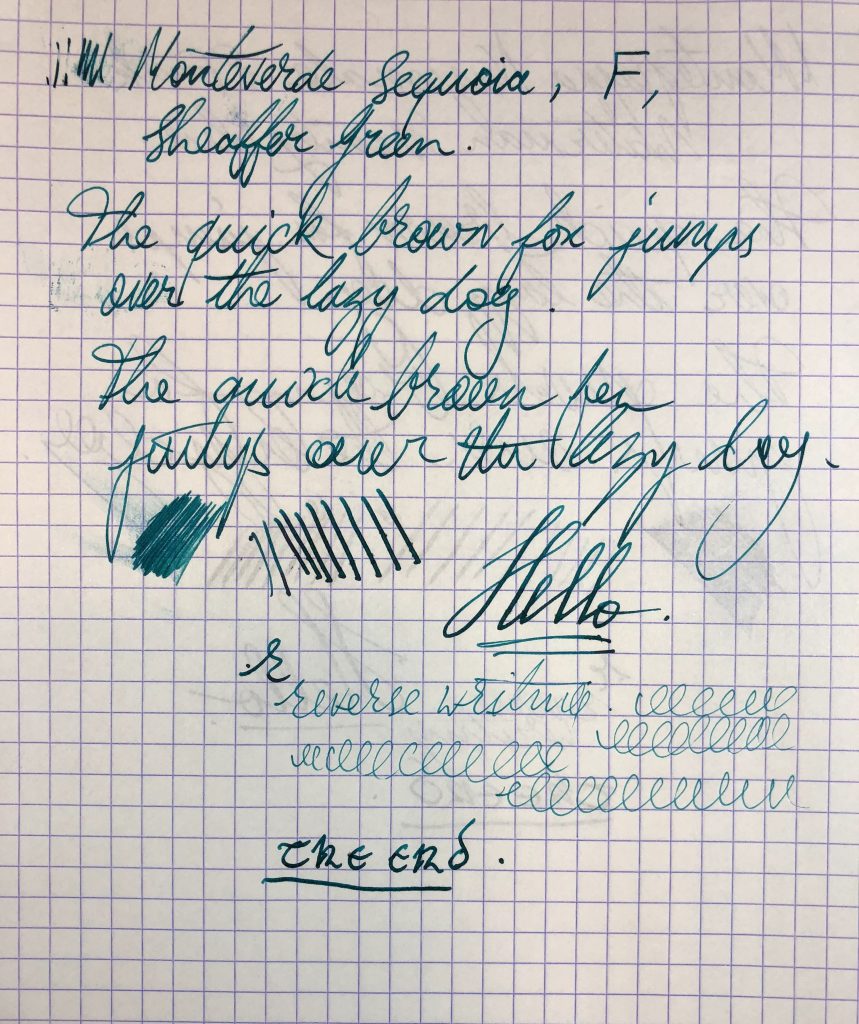 Monteverde Sequoia, F,
Sheaffer Green.
The quick brown fox jumps
over the lazy dog.
The quick brown fox
jumps over the lazy dog.
Hello.
r
reverse writing.
The end.